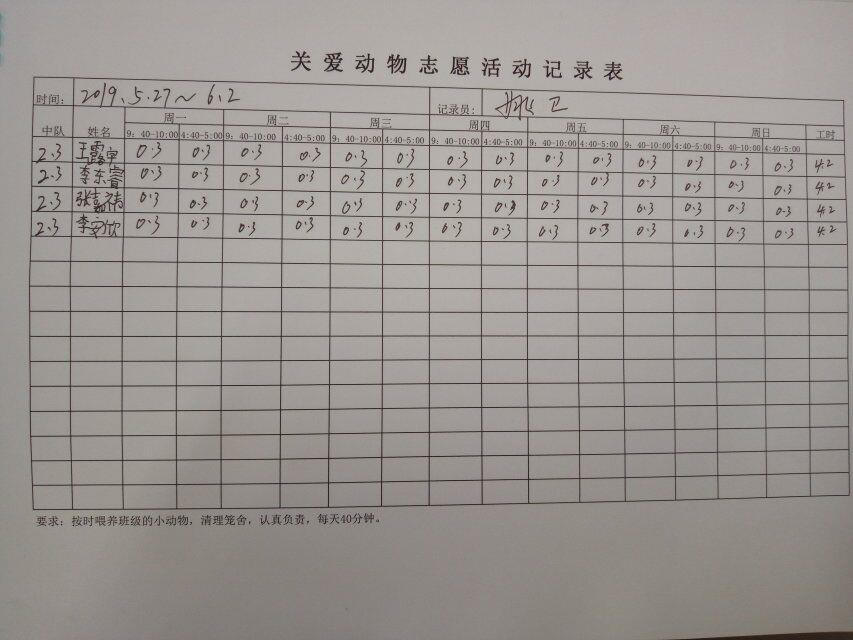 关爱动物志愿活动记录表
时间： 2019.5.27～6.2 记录员： 卫
中队 姓名 周一 周二 周三 周四 周五 周六 周日 工时
9：40-10:00 4:40-5:00 9：40-10:00 4:40-5:00 9：40-10:00 4:40-5:00 9：40-10:00 4:40-5:00 9：40-10:00 4:40-5:00 9：40-10:00 4:40-5:00 9：40-10:00 4:40-5:00
2.3 王露 0.3 0.3 0.3 0.3 0.3 0.3 0.3 0.3 0.3 0.3 0.3 0.3 0.3 0.3 4.2
2.3 李东睿 0.3 0.3 0.3 0.3 0.3 0.3 0.3 0.3 0.3 0.3 0.3 0.3 0.3 0.3 4.2
2.3 张嘉 0.3 0.3 0.3 0.3 0.3 0.3 0.3 0.3 0.3 0.3 0.3 0.3 0.3 0.3 4.2
2.3 李欣 0.3 0.3 0.3 0.3 0.3 0.3 0.3 0.3 0.3 0.3 0.3 0.3 0.3 0.3 4.2
要求：按时喂养班级的小动物，清理笼舍，认真负责，每天40分钟。